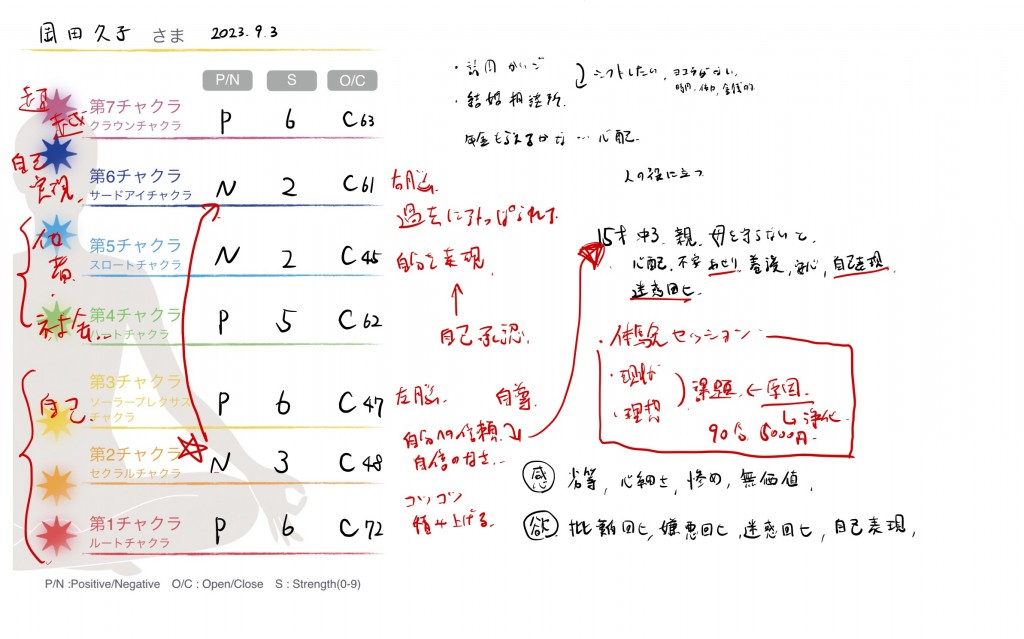 岡田久子 さま 2023.9.3
P/N S O/C
第7チャクラ
クラウンチャクラ
P 6 C63
第6チャクラ
サードアイチャクラ
N 2 C61
第5チャクラ
スロートチャクラ
N 2 C45
第4チャクラ
ハートチャクラ
P 5 C62
第3チャクラ
ソーラープレクサス
チャクラ
P 6 C47
第2チャクラ
セクラルチャクラ
N 3 C48
第1チャクラ
ルートチャクラ
P 6 C72
P/N :Positive/Negative O/C : Open/Close S : Strength(0-9)
超
越
自己
他
者
社会
自己
右脳
過去に
自分を表現
自己承認
左脳 自尊
自分への信頼
自信のなさ
コツコツ
積み上げる
・訪問
・結婚相談所
シフトしたい
心配
人の役に立つ
15才 中3 親、母を守らないと、
心配、不安 あせり、養護、自己表現
迷惑回ヒ
・体験セッション
・現状
・理想
課題 ← 原因
浄化
90分 5000円
感 劣等、心細さ、惨め、無価値、
欲 批難回ヒ、嫌悪回ヒ、迷惑回ヒ、自己表現、